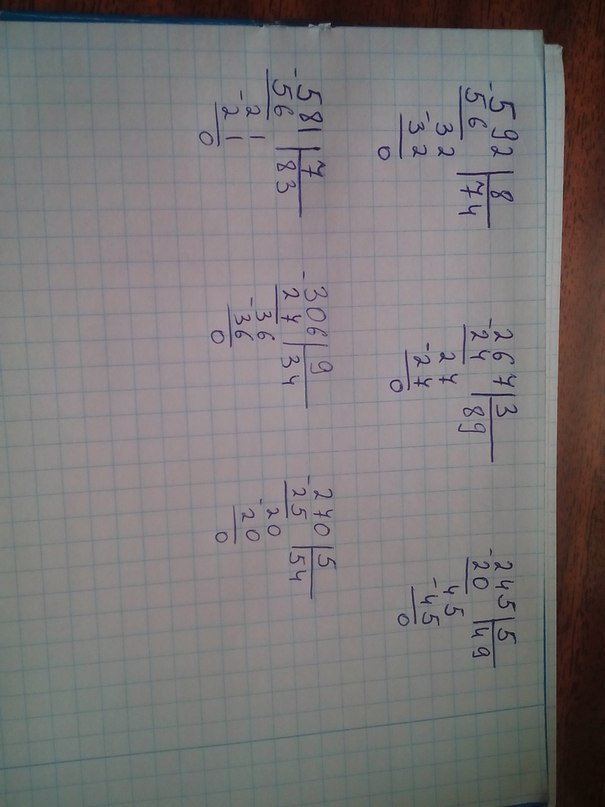 -592|8
56|74
-32
32
0
-267|3
24|89
27
-27
0
-245|5
20|49
45
-45
0
-581|7
56|83
-21
21
0
-306|9
27|34
-36
36
0
-270|5
25|54
-20
20
0